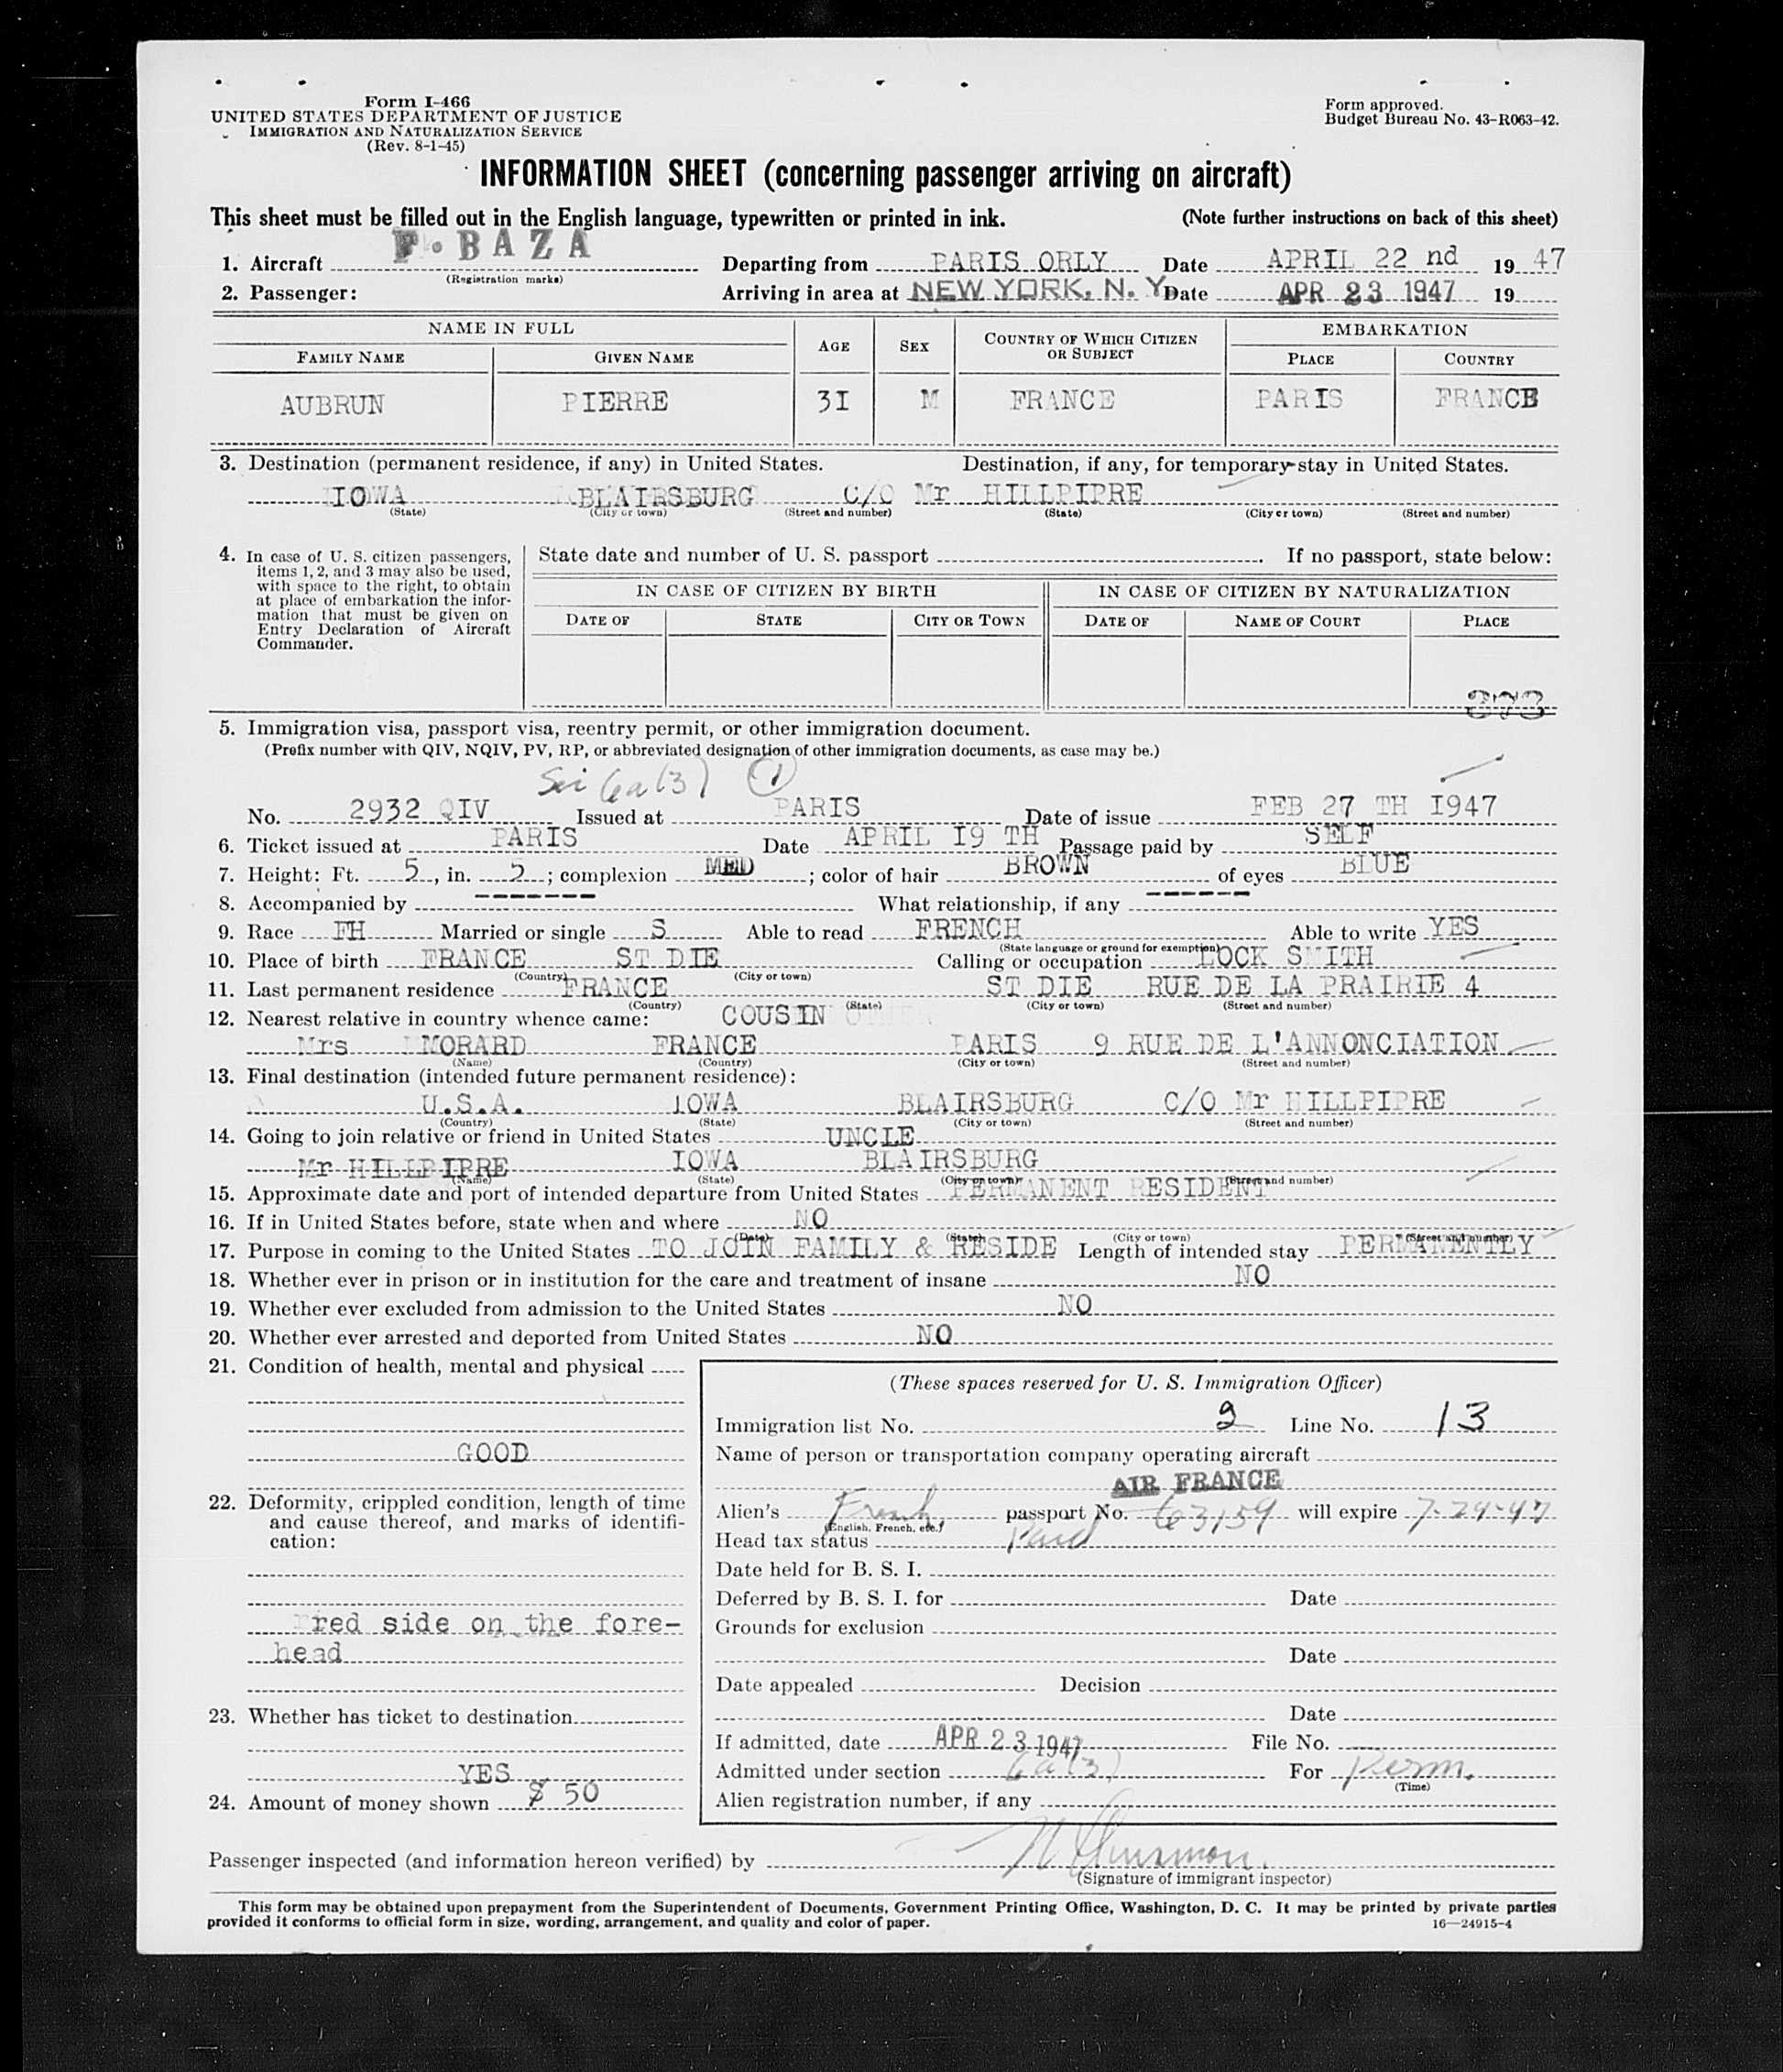 Form I-466
UNITED STATES DEPARTMENT OF JUSTICE
IMMIGRATION AND NATURALIZATION SERVICE
(Rev. 8-1-45)
Form approved.
Budget Bureau No. 43-R063-42.
INFORMATION SHEET (concerning passenger arriving on aircraft)
This sheet must be filled out in the English language, typewritten or printed in ink. (Note further instructions on back of this sheet)
1. Aircraft F.BAZA Departing from PARIS ORLY Date APRIL 22 nd 19 47
(Registration marks)
2. Passenger: Arriving in area at NEW YORK, N. Y. Date APR 23 1947 19
NAME IN FULL AGE SEX COUNTRY OF WHICH CITIZEN OR SUBJECT EMBARKATION
FAMILY NAME GIVEN NAME PLACE COUNTRY
AUBRUN PIERRE 3I M FRANCE PARIS FRANCE
3. Destination (permanent residence, if any) in United States. Destination, if any, for temporary stay in United States.
IOWA BLAIRSBURG C/O Mr HILLPIPRE
(State) (City or town) (Street and number) (State) (City or town) (Street and number)
4. In case of U. S. citizen passengers, items 1, 2, and 3 may also be used, with space to the right, to obtain at place of embarkation the information that must be given on Entry Declaration of Aircraft Commander.
State date and number of U. S. passport . If no passport, state below:
IN CASE OF CITIZEN BY BIRTH IN CASE OF CITIZEN BY NATURALIZATION
DATE OF STATE CITY OR TOWN DATE OF NAME OF COURT PLACE
373
5. Immigration visa, passport visa, reentry permit, or other immigration document.
(Prefix number with QIV, NQIV, PV, RP, or abbreviated designation of other immigration documents, as case may be.)
6a(3) 1
No. 2932 QIV Issued at PARIS Date of issue FEB 27 TH I947
6. Ticket issued at PARIS Date APRIL I9 TH Passage paid by SELF
7. Height: Ft. 5, in. 5; complexion MED; color of hair BROWN of eyes BLUE
8. Accompanied by ------- What relationship, if any ------
9. Race FH Married or single S Able to read FRENCH Able to write YES
(State language or ground for exemption)
10. Place of birth FRANCE ST DIE Calling or occupation LOCK SMITH
(Country) (City or town)
11. Last permanent residence FRANCE ST DIE RUE DE LA PRAIRIE 4
(Country) (State) (City or town) (Street and number)
12. Nearest relative in country whence came: COUSIN
Mrs MORARD FRANCE PARIS 9 RUE DE L'ANNONCIATION
(Name) (Country) (City or town) (Street and number)
13. Final destination (intended future permanent residence):
U.S.A. IOWA BLAIRSBURG C/O Mr HILLPIPRE
(Country) (State) (City or town) (Street and number)
14. Going to join relative or friend in United States UNCLE
Mr HILLPIPRE IOWA BLAIRSBURG
(Name) (State) (City or town) (Street and number)
15. Approximate date and port of intended departure from United States PERMANENT RESIDENT
16. If in United States before, state when and where NO
(Date) (State) (City or town) (Street and number)
17. Purpose in coming to the United States TO JOIN FAMILY & RESIDE Length of intended stay PERMANENTLY
18. Whether ever in prison or in institution for the care and treatment of insane NO
19. Whether ever excluded from admission to the United States NO
20. Whether ever arrested and deported from United States NO
21. Condition of health, mental and physical
GOOD
22. Deformity, crippled condition, length of time and cause thereof, and marks of identification:
red side on the fore-
head
23. Whether has ticket to destination
YES
24. Amount of money shown $ 50
(These spaces reserved for U. S. Immigration Officer)
Immigration list No. 2 Line No. 13
Name of person or transportation company operating aircraft
AIR FRANCE
Alien's French passport No. 63159 will expire 7-24-47
(English, French, etc.)
Head tax status Paid
Date held for B. S. I.
Deferred by B. S. I. for Date
Grounds for exclusion
Date
Date appealed Decision
Date
If admitted, date APR 23 1947 File No.
Admitted under section 6a(3) For Perm.
(Time)
Alien registration number, if any
Passenger inspected (and information hereon verified) by
(Signature of immigrant inspector)
This form may be obtained upon prepayment from the Superintendent of Documents, Government Printing Office, Washington, D. C. It may be printed by private parties
provided it conforms to official form in size, wording, arrangement, and quality and color of paper.
16—24915-4